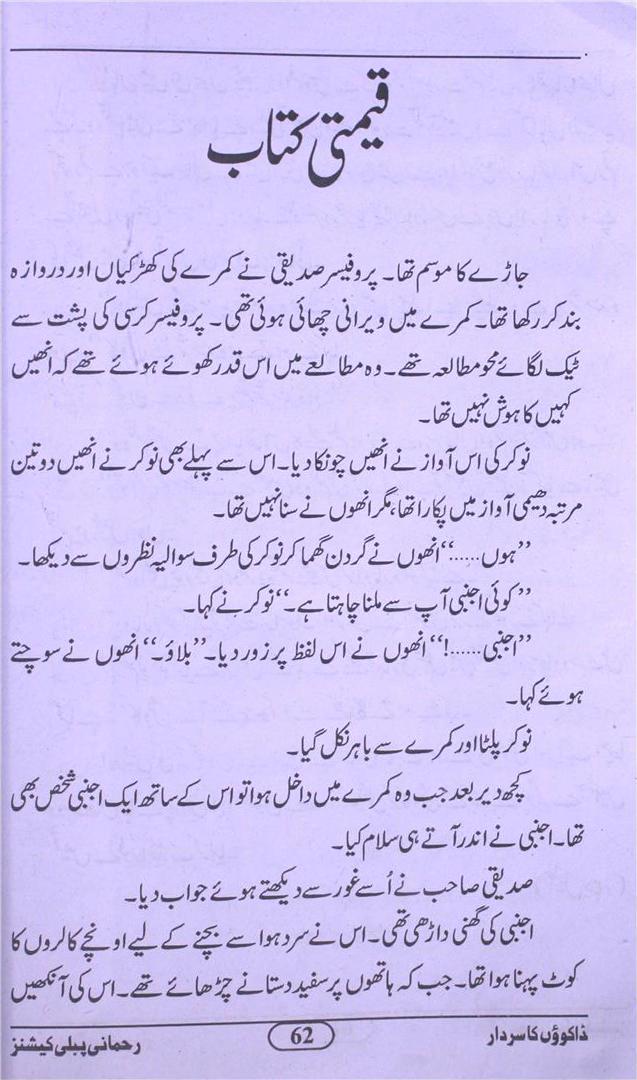 قیمتی کتاب
جاڑے کا موسم تھا۔ پروفیسر صدیقی نے کمرے کی کھڑکیاں اور دروازہ
بند کر رکھا تھا۔ کمرے میں ویرانی چھائی ہوئی تھی۔ پروفیسر کرسی کی پشت سے
ٹیک لگائے محو مطالعہ تھے۔ وہ مطالعے میں اس قدر کھوئے ہوئے تھے کہ انھیں
کہیں کا ہوش نہیں تھا۔
نوکر کی اس آواز نے انھیں چونکا دیا۔ اس سے پہلے بھی نوکر نے انھیں دو تین
مرتبہ دھیمی آواز میں پکارا تھا، مگر انھوں نے سنا نہیں تھا۔
”ہوں.....“ انھوں نے گردن گھما کر نوکر کی طرف سوالیہ نظروں سے دیکھا۔
”کوئی اجنبی آپ سے ملنا چاہتا ہے۔“ نوکر نے کہا۔
”اجنبی.....!“ انھوں نے اس لفظ پر زور دیا۔ ”بلاؤ۔“ انھوں نے سوچتے
ہوئے کہا۔
نوکر پلٹا اور کمرے سے باہر نکل گیا۔
کچھ دیر بعد جب وہ کمرے میں داخل ہوا تو اس کے ساتھ ایک اجنبی شخص بھی
تھا۔ اجنبی نے اندر آتے ہی سلام کیا۔
صدیقی صاحب نے اُسے غور سے دیکھتے ہوئے جواب دیا۔
اجنبی کی گھنی داڑھی تھی۔ اس نے سرد ہوا سے بچنے کے لیے اونچے کالروں کا
کوٹ پہنا ہوا تھا۔ جب کہ ہاتھوں پر سفید دستانے چڑھائے تھے۔ اس کی آنکھیں
ڈاکوؤں کا سردار 62 رحمانی پبلی کیشنز